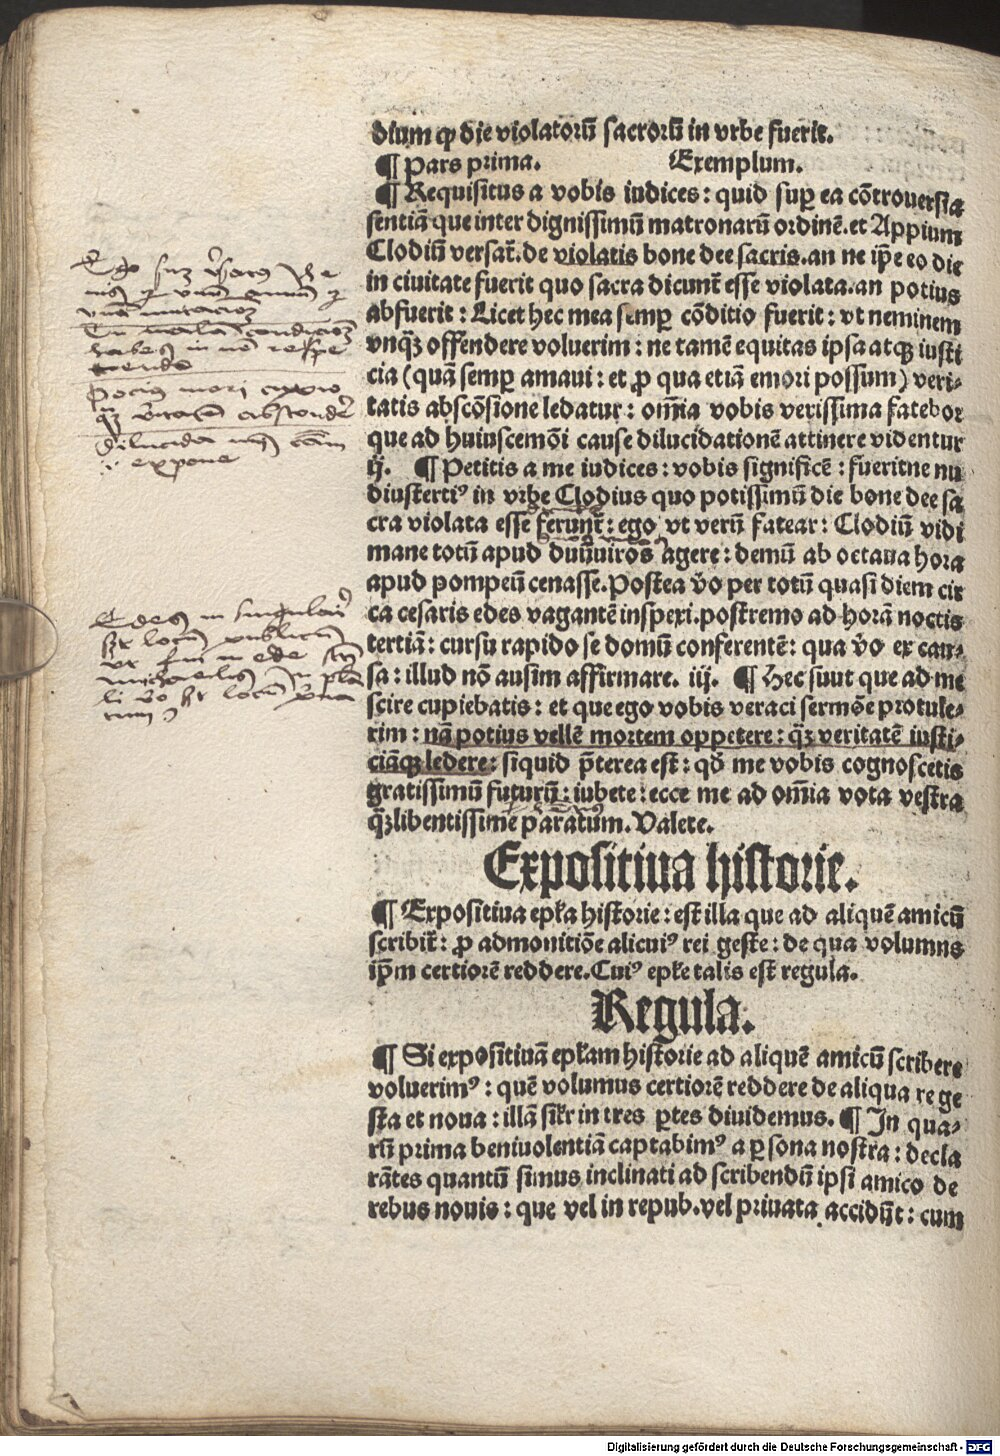 dium ꝙ die violatorū sacrorū in vrbe fuerit.
¶ Pars prima. Exemplum.
¶ Requisitus a vobis iudices: quid suꝑ ea cōtrouersia
sentiā que inter dignissimū matronarū ordinē.et Appium
Clodiū versat̄.de violatis bone dee sacris.an ne ip̄e eo die
in ciuitate fuerit quo sacra dicunt̄ esse violata.an potius
abfuerit: Licet hec mea semꝑ cōditio fuerit: vt neminem
vnqꝫ offendere voluerim: ne tamē equitas ipsa atqꝫ iusti
cia (quā semꝑ amaui: et ꝓ qua etiā emori possum) veri-
tatis abscōsione ledatur: om̄ia vobis verissima fatebor
que ad huiuscemōi cause dilucidationē attinere videntur
ij. ¶ Petitis a me iudices: vobis significē: fueritne nu
diusterti⁹ in vrbe Clodius quo potissimū die bone dee sa
cra violata esse ferunt̄: ego vt verū fatear: Clodiū vidi
mane totū apud duūuiros agere: demū ab octaua hora
apud pompeū cenasse.Postea v̄o per totū quasi diem cir
ca cesaris edes vagantē inspexi.postremo ad horā noctis
tertiā: cursu rapido se domū conferentē: qua v̄o ex cau-
sa: illud nō ausim affirmare. iij. ¶ Hec suut que ad me
scire cupiebatis: et que ego vobis veraci sermōe protule-
rim: nā potius vellē mortem oppetere: qꝫ veritatē iusti-
ciāqꝫ ledere: siquid p̄terea est: qd̄ me vobis cognoscetis
gratissimū futurū: iubete: ecce me ad om̄ia vota vestra
qꝫlibentissime paratum.Valete.
Expositiua historie.
¶ Expositiua epl̄a historie: est illa que ad aliquē amicū
scribit̄: ꝓ admonitiōe alicui⁹ rei geste: de qua volumus
ip̄m certiorē reddere.Cui⁹ epl̄e talis est regula.
Regula.
¶ Si expositiuā epl̄am historie ad aliquē amicū scribere
voluerim⁹: quē volumus certiorē reddere de aliqua re ge
sta et noua: illā sil̄r in tres ꝑtes diuidemus. ¶ In qua-
rū prima beniuolentiā captabim⁹ a ꝑsona nostra: decla
rātes quantū simus inclinati ad scribendū ipsi amico de
rebus nouis: que vel in repub.vel priuata accidūt: cum
Digitalisierung gefördert durch die Deutsche Forschungsgemeinschaft - DFG